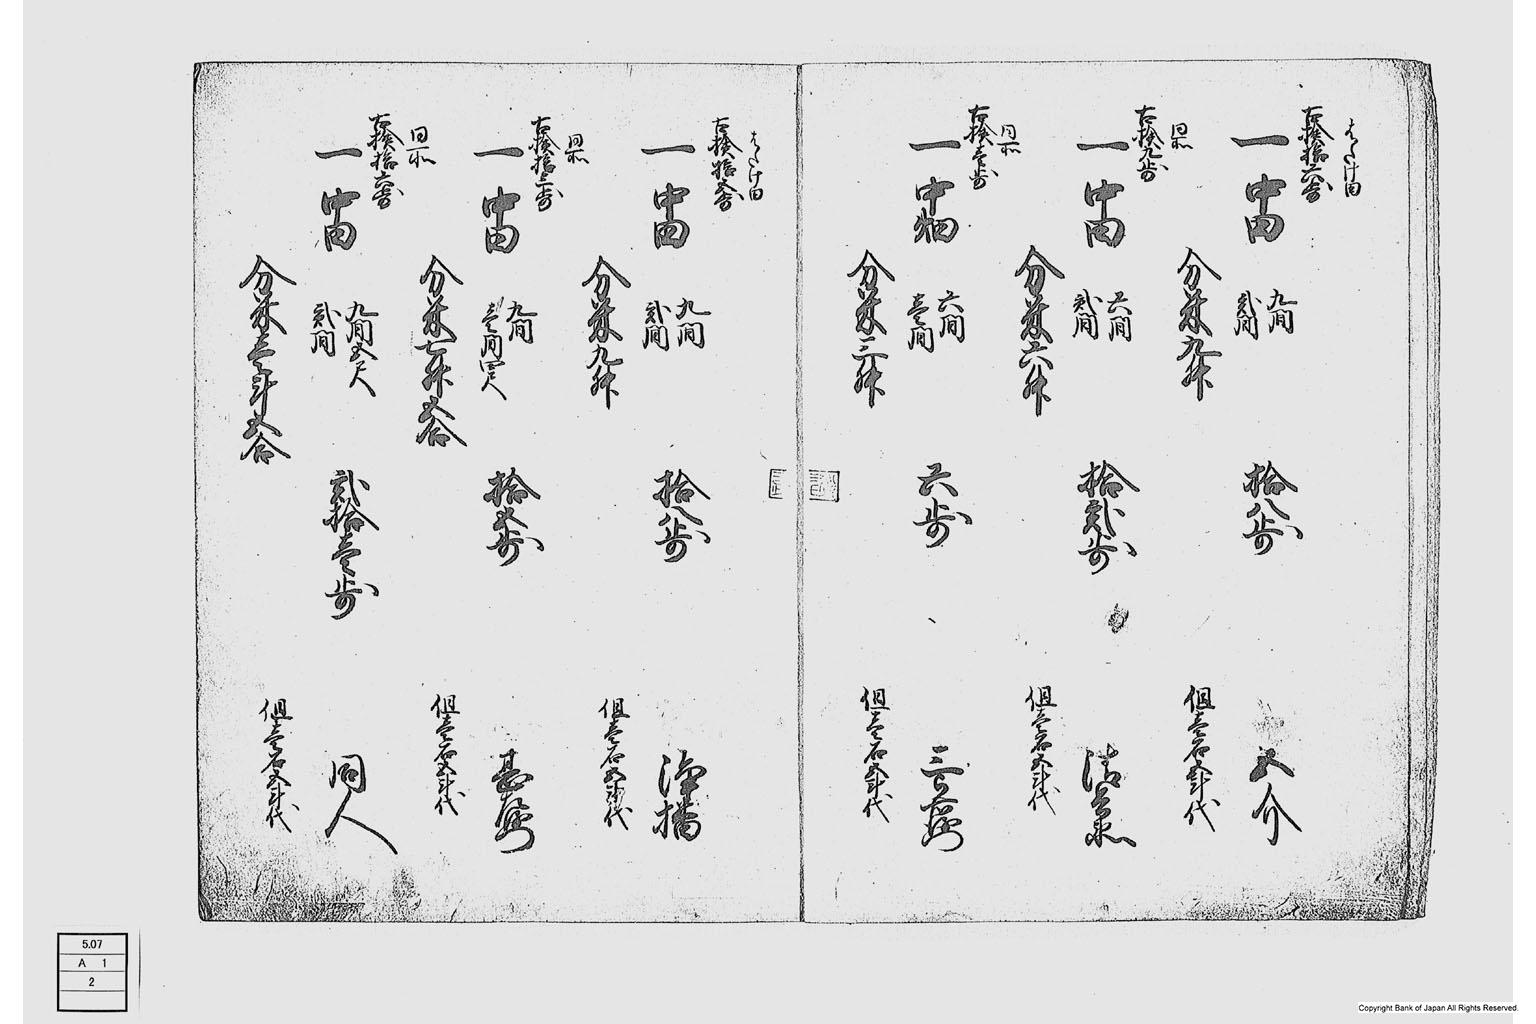 はたけ田
古検拾六歩
一 中田
九間
弐間
拾八歩
五介
分米九升
但壱石五斗代
同所
古検九歩
一 中田
六間
弐間
拾弐歩
分米六升
但壱石五斗代
同所
古検壱歩
一 中畑
六間
壱間
六歩
分米三升
但壱石五斗代
はたけ田
古検拾五歩
一 中田
九間
弐間
拾八歩
浄播
分米九升
但壱石五斗代
同所
古検拾三歩
一 中田
九間
壱間四尺
拾五歩
分米七升五合
但壱石五斗代
同所
古検拾六歩
一 中田
九間五尺
弐間
弐拾壱歩
同人
分米壱斗五合
但壱石五斗代
5.07
A 1
2
Copyright Bank of Japan All Rights Reserved.